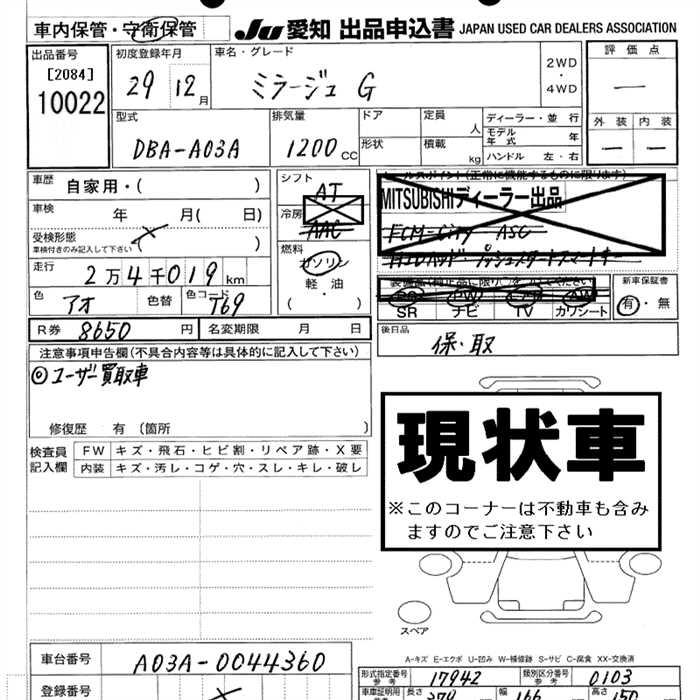 車内保管・守衛保管
JU 愛知 出品申込書 JAPAN USED CAR DEALERS ASSOCIATION
出品番号
[2084]
10022
初度登録年月
29 12月
車名・グレード
ミラージュ G
2WD
・
4WD
評価点
—
外装 内装
— —
型式
DBA-A03A
排気量
1200cc
ドア
形状
定員
人
積載
kg
ディーラー・並行
モデル年式 年
ハンドル 左・右
車歴 自家用・( )
車検 年 月( 日)
受検形態
車検付きのみ記入して下さい ( )
走行 2万4千019km
色 アオ 色替 色コード T69
シフト
AT
冷房
AAC
燃料
ガソリン
軽油
( )
セールスポイント(正常に機能するものに限ります)
MITSUBISHIディーラー出品
FCM-City ASC
装備品(純正品に限り○をして下さい)
PS PW AW
SR ナビ TV カワシート
新車保証書
有・無
R券 8650円 名変期限 月 日
後日品
保・取
注意事項申告欄(不具合内容等は具体的に記入して下さい)
◎ユーザー買取車
修復歴 有 (箇所 )
検査員記入欄
FW キズ・飛石・ヒビ割・リペア跡・X要
内装 キズ・汚レ・コゲ・穴・スレ・キレ・破レ
現状車
※このコーナーは不動車も含み
ますのでご注意下さい
スペア
A-キズ E-エクボ U-凹み W-補修跡 S-サビ C-腐食 XX-交換済
車台番号 A03A-0044360
登録番号
型式指定番号
参考
17942
類別区分番号
参考
0103
車庫証明用
参考
長さ 378 幅 166 高さ 150